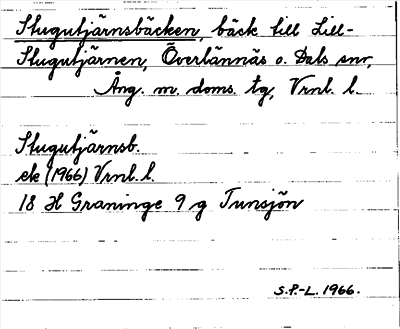 Stugutjärnsbäcken, bäck till Lill-
Stugutjärnen, Överlännäs o. Dals snr,
Ång. m. doms. tg, Vrnl. l.
Stugutjärnsb.
ek (1966) Vrnl. l.
18 H Graninge 9 g Tunsjön
S.P.-L. 1966.